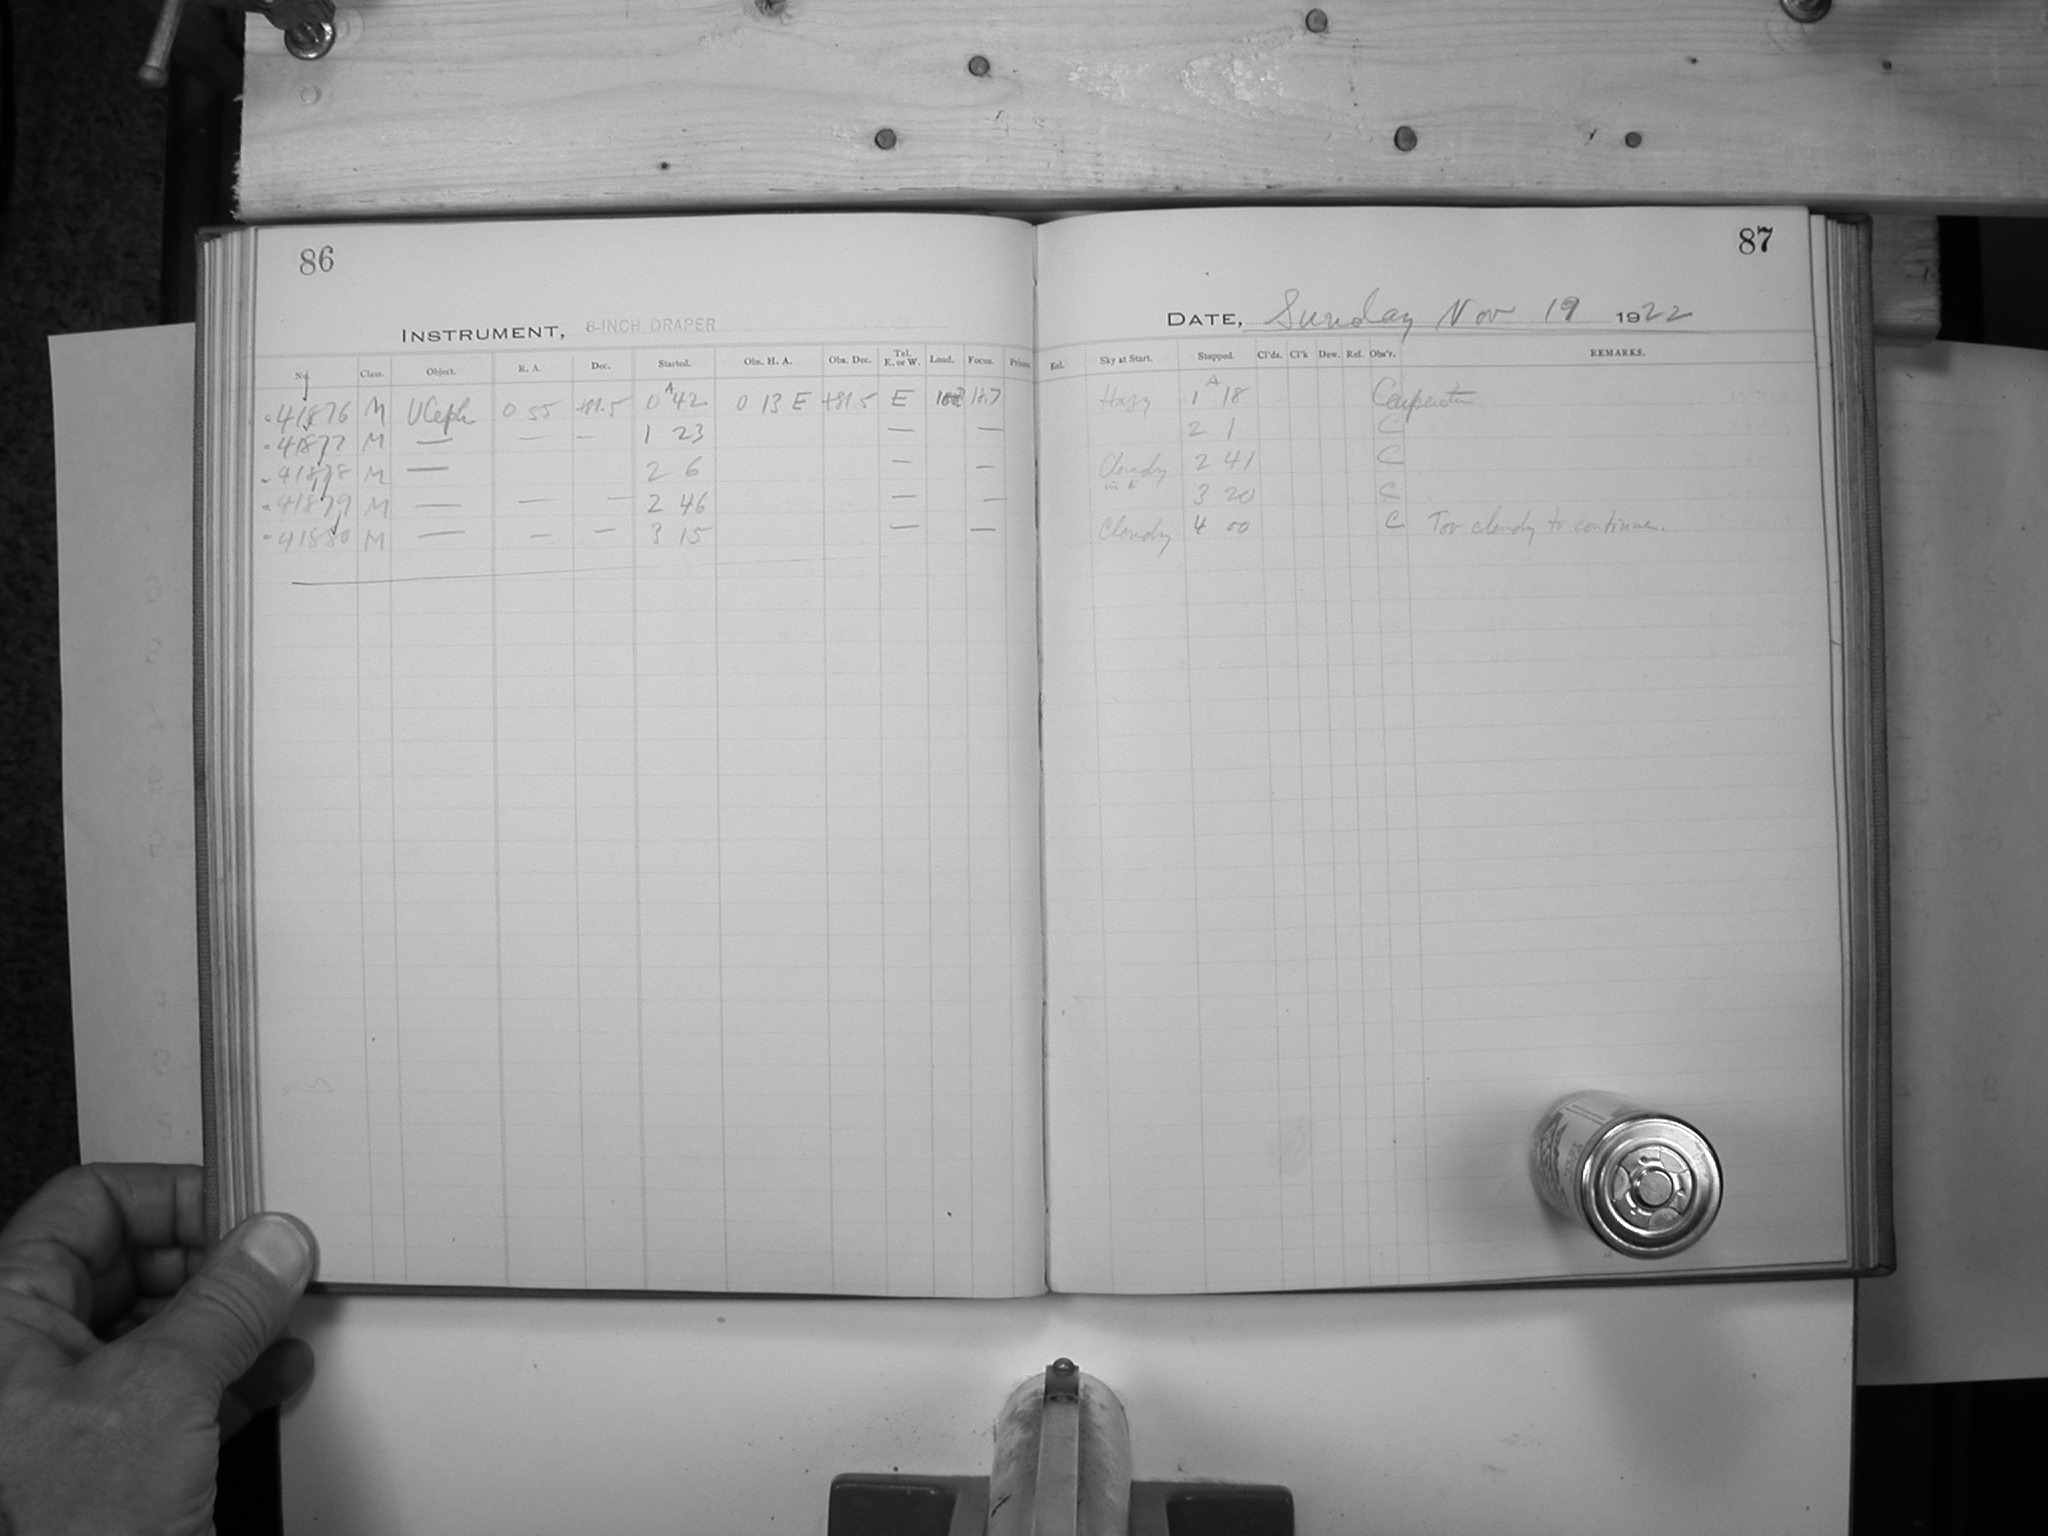 86
87
INSTRUMENT, 8-INCH DRAPER
DATE, Sunday Nov 19 1922
No. Class. Object. R. A. Dec. Started. Obs. H. A. Obs. Dec. Tel. E. or W. Load. Focus. Prism. Exl. Sky at Start. Stopped. Cl'ds. Cl'k Dew. Ref. Obs'r. REMARKS.
41876 M U Ceph 0 55 +81.5 0 A 42 0 13 E +81.5 E 18.7 Hazy 1 A 18 Carpenter
41877 M — — — 1 23 — — 2 1 C
41878 M — 2 6 — — Cloudy in E 2 41 C
41879 M — — — 2 46 — — 3 20 C
41880 M — — — 3 15 — — Cloudy 4 00 C Too cloudy to continue.